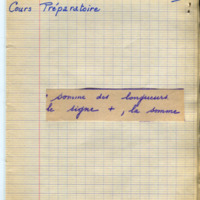 Cours Préparatoire
somme des longueurs
le signe + , la somme